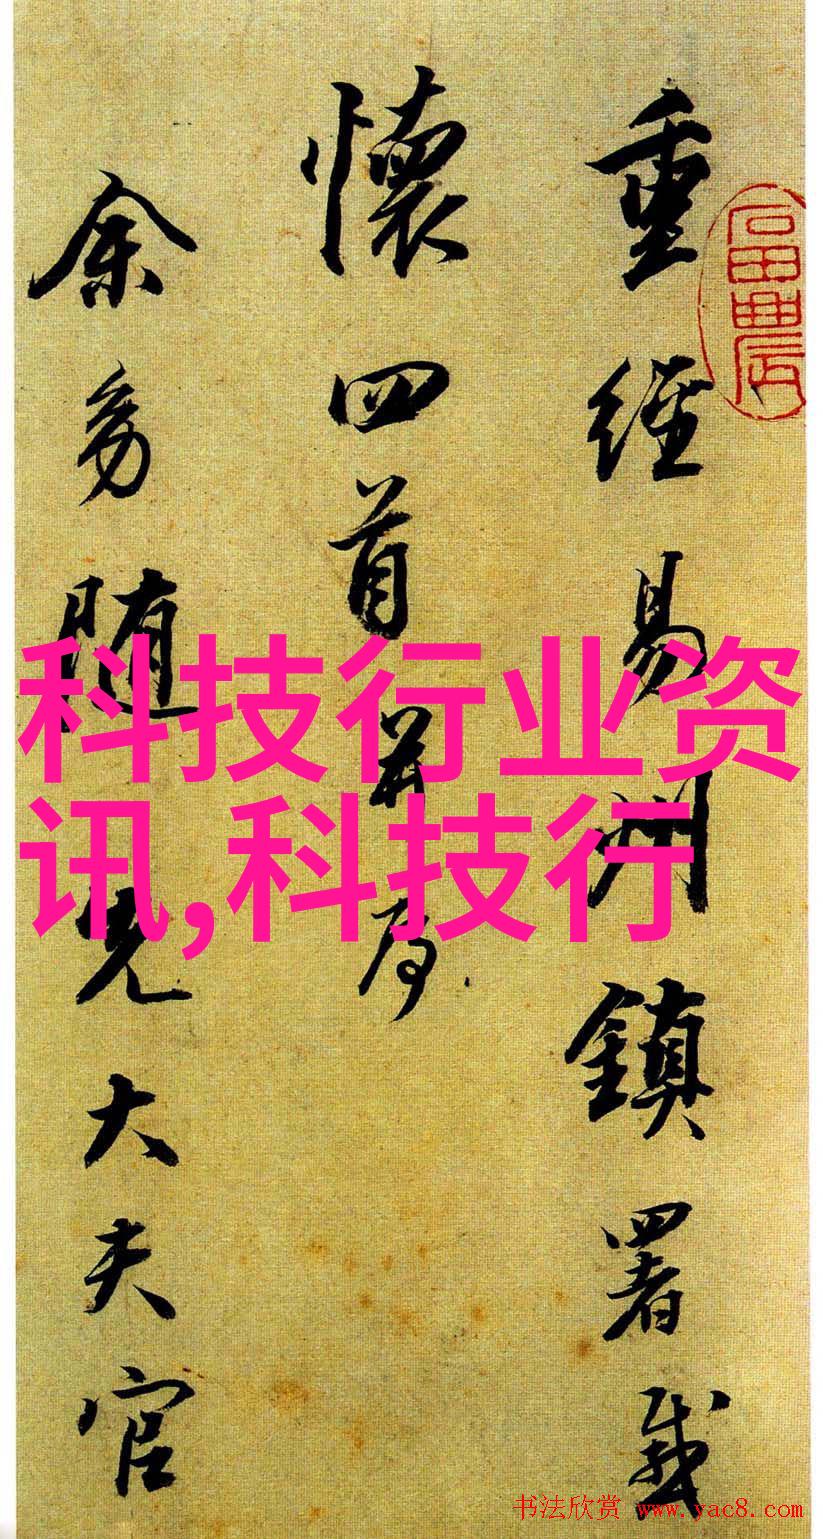 重经易州镇署感
懷四首并序
余幼随先大夫官
科技行业资
讯,科技行
书法欣赏 www.yac8.com